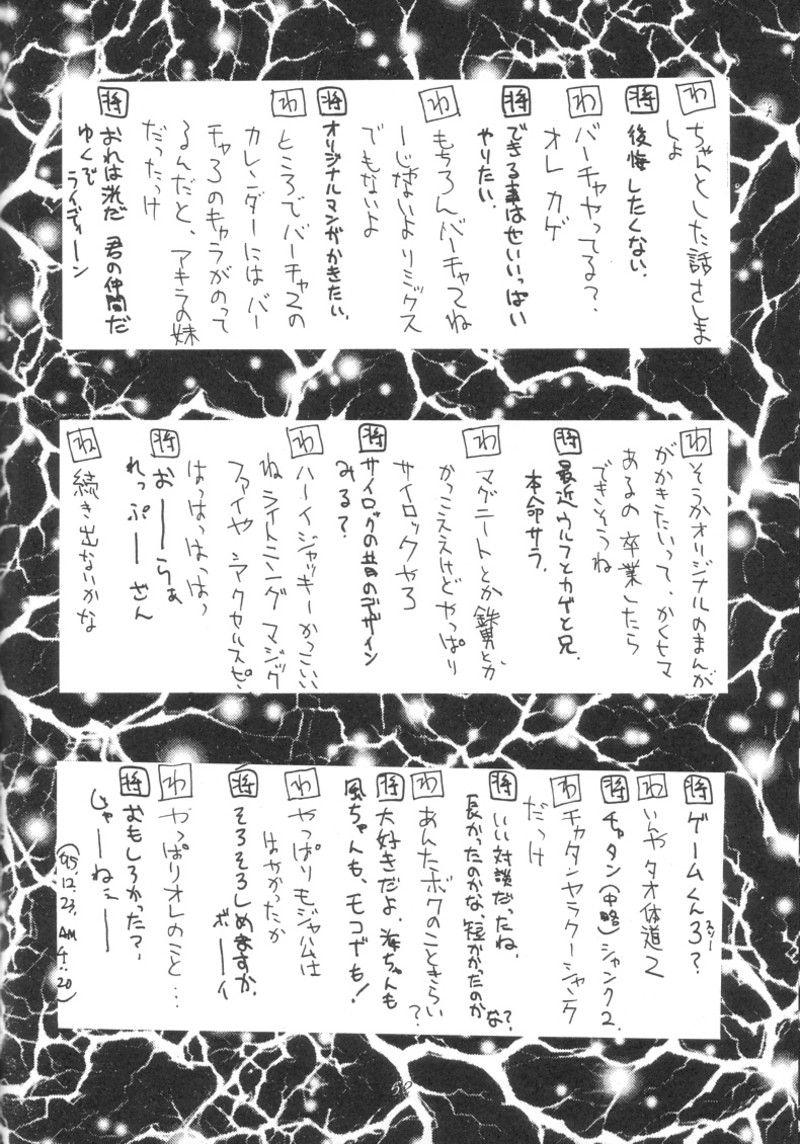 わ ちゃんとした話さしま
しょ
将 後悔したくない.
わ バーチャやってる?
オレ カゲ
将 できる事はせいいっぱい
やりたい.
わ もちろんバーチャでね
ーじゃないよリミックス
でもないよ
将 オリジナルマンガかきたい.
わ ところでバーチャ2の
カレンダーにはバー
チャ3のキャラがのって
るんだと、アキラの妹
だったっけ
将 おれは洸だ 君の仲間だ
ゆくぞ
ライディーン
わ そうかオリジナルのまんが
がかきたいって、かくヒマ
あるの 卒業したら
できそうね
将 最近ウルフとカゲと兄.
本命サラ.
わ マグニートとか鉄男とか
かっこええけどやっぱり
サイロックやろ
将 サイロックの昔のデザイン
みる?
わ ハーイジャッキーかっこいい
ねライトニング マジック
ファイヤ シアクセルスピ、
はっはっはっはっ
将 おーーらぁ
れっぷーざん
わ 続き出ないかな
将 ゲームくん3?
わ いんや タオ体道2
将 チャタン(中略)シャンク2.
わ チャタンヤラクーシャンク
だっけ
将 いい対談だったね.
長かったのかな、短かかったのか
な?
わ あんたボクのこときらい
?
将 大好きだよ、海ちゃんも
風ちゃんも、モコナも!
わ やっぱりモジャ公は
はやかったか
将 そろそろしめますか.
ボーイ
わ やっぱりオレのこと…
将 おもしろかった?
じゃーねぇーー
('95.12.23. AM 4:20)